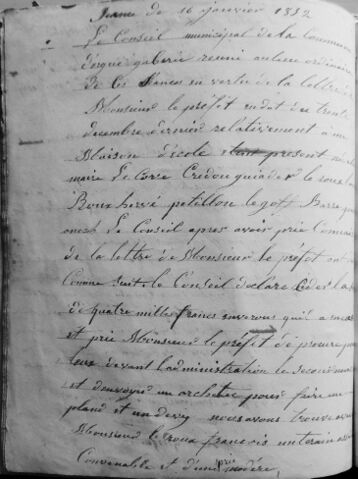 Seance du 16 janvier 1832
Le Conseil municipal de la Commune
d'erguegaberic reuni au lieu ordinaire
de ces séances en vertu de la lettre de
Monsieur le préfet en dat du trente
decembre dernier relativement a une
Maison d'école etant present
maire Le Corre Credou guiader le roux
Bourhervé petillon le goff Barre
Le Conseil apres avoir pris
de la lettre de Monsieur le préfet
Comme suit le Conseil declare ceder la
de quatre mille francs
et prie Monsieur le préfet de procurer
devant l'administration le second
et d'envoyer un archetec pour faire un
pland et un devey nous avons trouve
Monsieur le roux francois un terain assez
Convenable et d'une prix modéré,